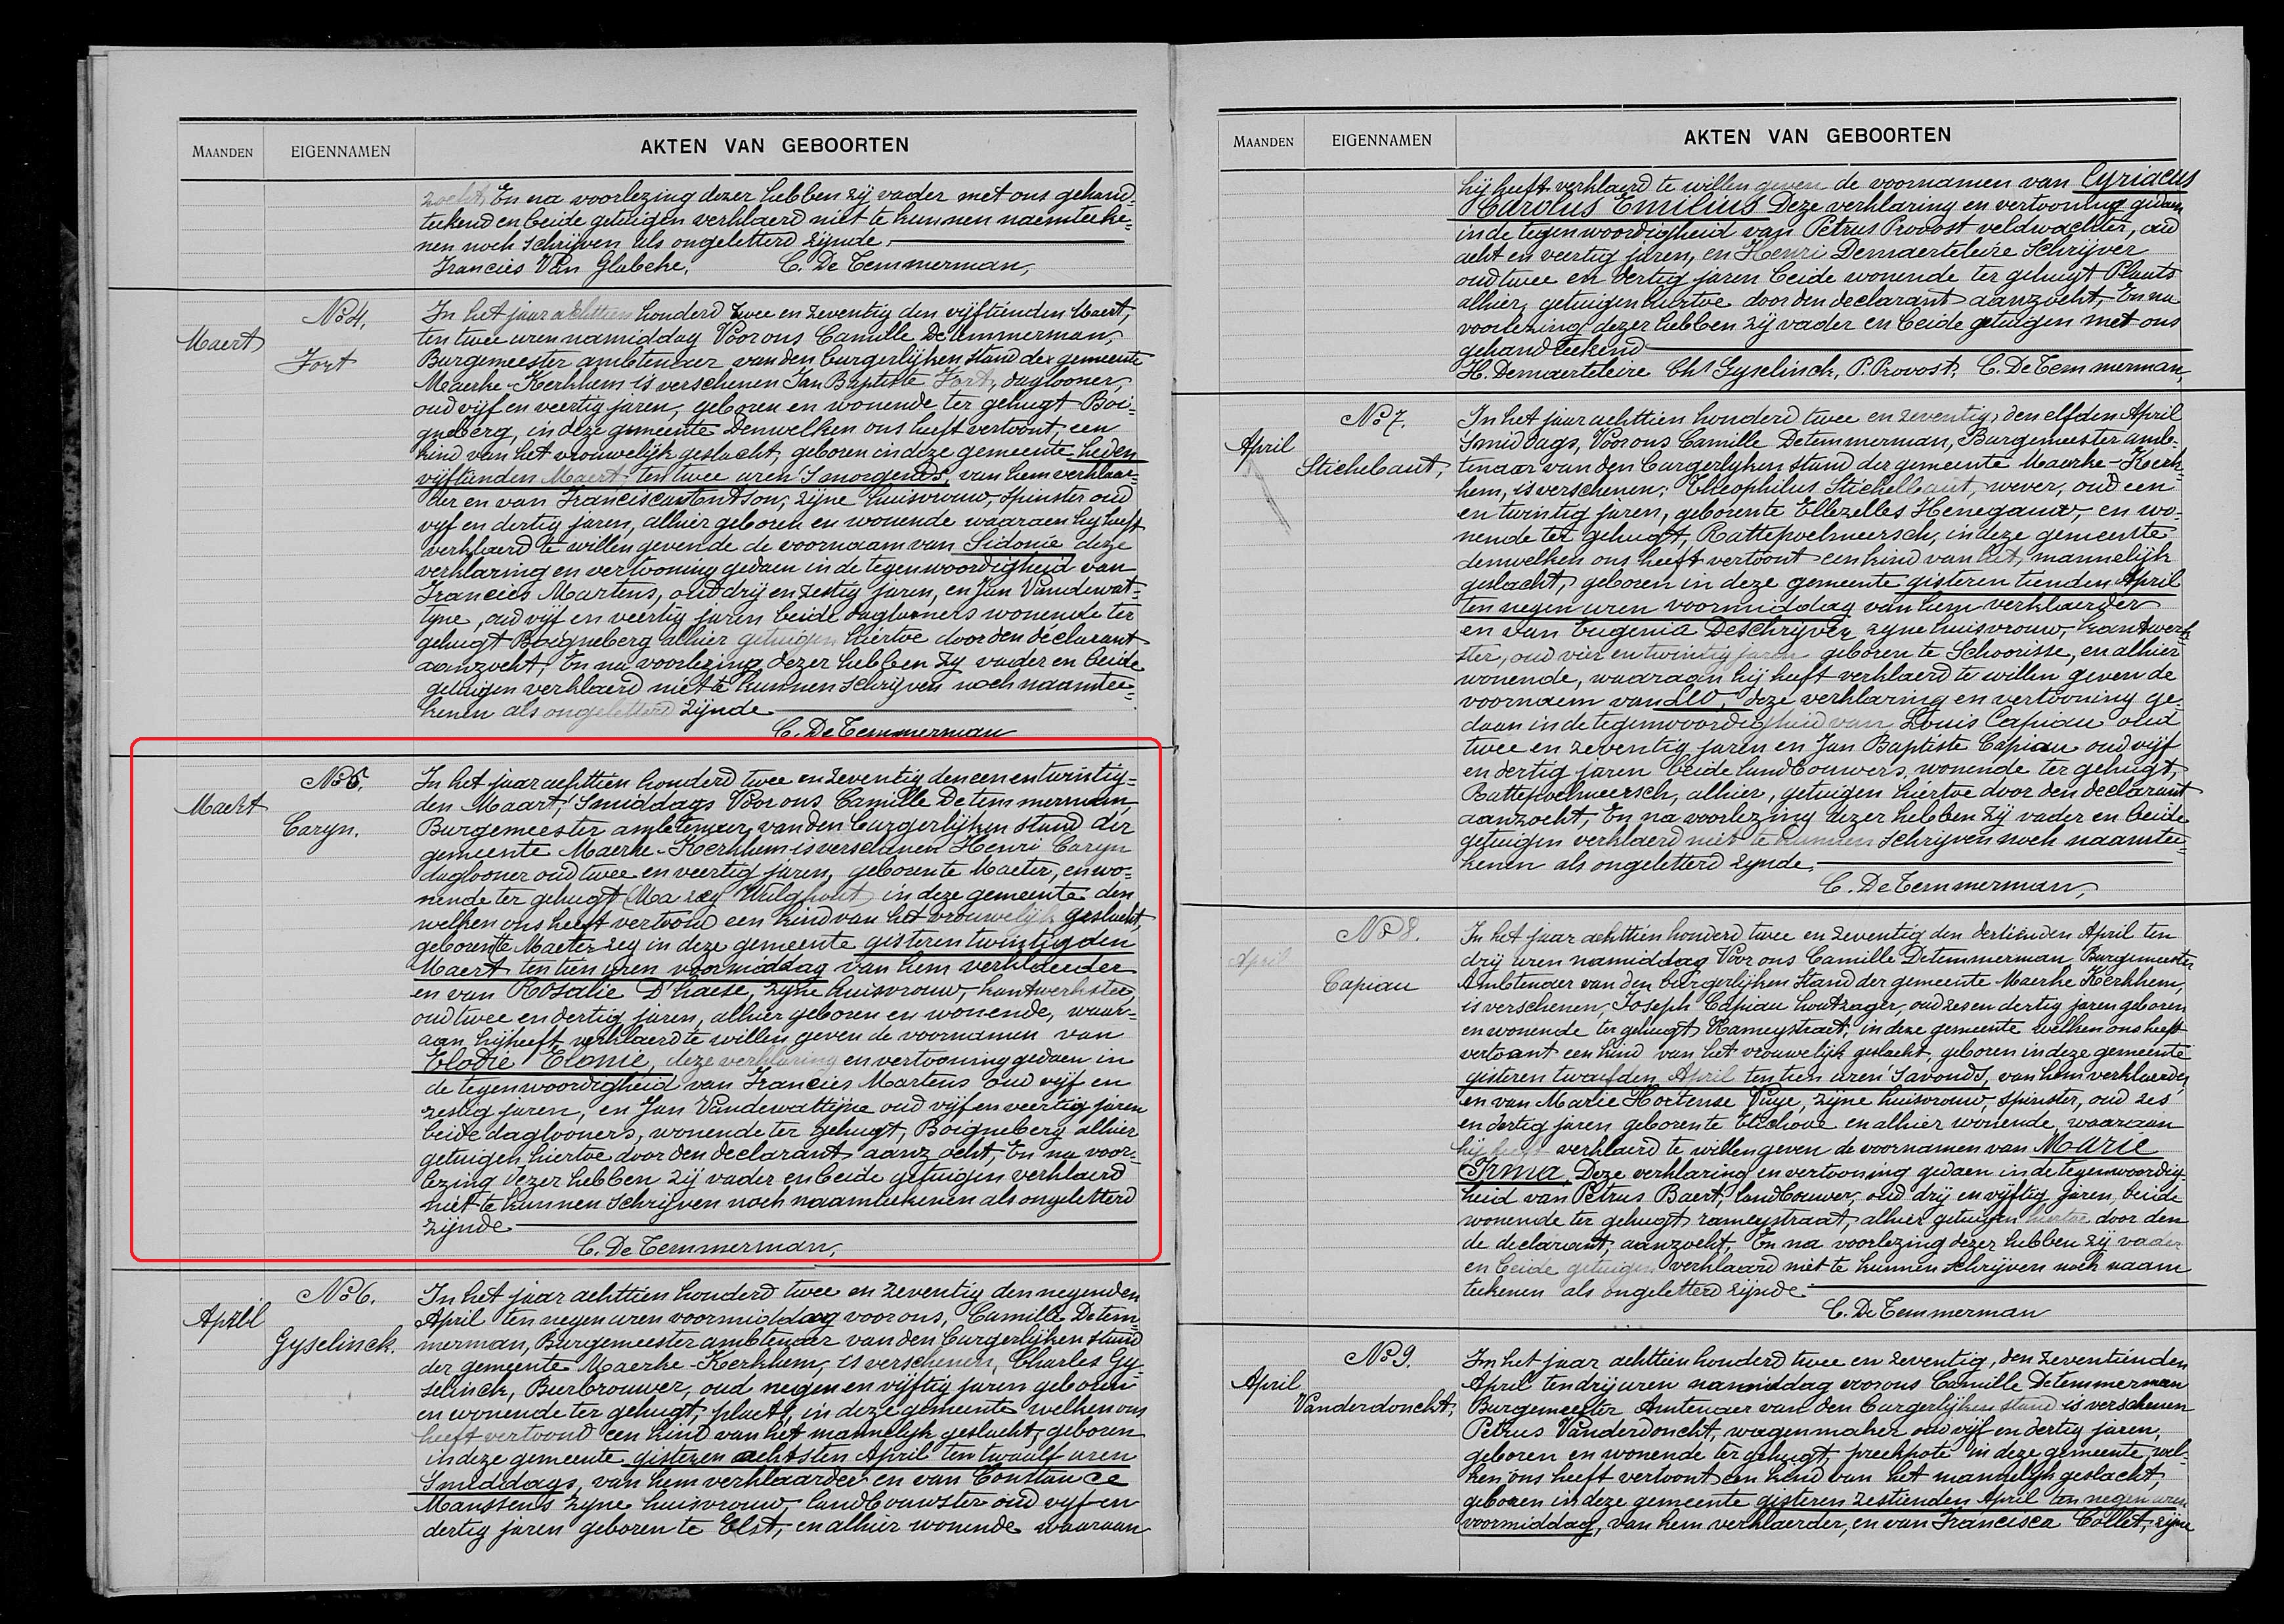 MAANDEN EIGENNAMEN AKTEN VAN GEBOORTEN
zocht, En na voorlezing dezer hebben zij vader met ons gehand-
teekend en beide getuigen verklaerd niet te kunnen naemteeke-
nen noch schrijven als ongeletterd zijnde.
Francies Van Glabeke, C. De Temmerman,
No 4.
Maert
Fort
In het jaar achttien honderd twee en zeventig den vijftienden Maert,
ten twee uren namiddag Voor ons Camille De Temmerman,
Burgemeester ambtenaer van den burgerlijken stand der gemeente
Maerke-Kerkhem is verschenen Jan Baptiste Fort, daglooner,
oud vijf en veertig jaren, geboren en wonende ter gehugt Boi-
gneberg, in deze gemeente Denwelken ons heeft vertoont, een
kind van het vrouwelijk geslacht, geboren in deze gemeente heden
vijftienden Maert ten twee uren 'Smorgends, van hem verklaar-
der en van zijne huisvrouw, spinster oud
vijf en dertig jaren, alhier geboren en wonende waaraen hij heeft
verklaerd te willen gevende de voornaam van Sidonie deze
verklaring en vertooning gedaen in de tegenwoordigheid van
Francies Martens, oud drij en zestig jaren, en Jan Vandewat-
tyne, oud vijf en veertig jaren beide daglooners wonende ter
gehugt Boigneberg alhier getuigen hiertoe door den declarant
aanzocht, En na voorlezing dezer hebben zij vader en beide
getuigen verklaerd niet te kunnen schrijven noch naamtee-
kenen als ongeletterd zijnde
C. De Temmerman
No 5.
Maert
Caryn.
In het jaar achttien honderd twee en zeventig den een en twintig-
den Maart, 'Smiddags Voor ons Camille Detemmerman,
Burgemeester ambtenaer van den burgerlijken stand der
gemeente Maerke-Kerkhem is verschenen Henri Caryn
daglooner oud twee en veertig jaren, geboren te Maeter, en wo-
nende ter gehugt (Ma zey Wulghout) in deze gemeente den
welken ons heeft vertoond een kind van het vrouwelijk geslacht,
geboren te Maeter zey in deze gemeente gisteren twintigden
Maert ten tien uren voormiddag van hem verklaerder
en van Rosalie D'haese, zijne huisvrouw, kantwerkster,
oud twee en dertig jaren, alhier geboren en wonende, waar-
aan hij heeft verklaerd te willen geven de voornamen van
Elodie Elonie, deze verklaring en vertooning gedaen in
de tegenwoordigheid van Francies Martens oud vijf en
zestig jaren, en Jan Vandewattijne oud vijf en veertig jaren
beide daglooners, wonende ter gehugt, Boigneberg alhier
getuigen hiertoe door den declarant aanzocht, En na voor-
lezing dezer hebben zij vader en beide getuigen verklaerd
niet te kunnen schrijven noch naamteekenen als ongeletterd
zijnde
C. De Temmerman,
No 6.
April
Gyselinck.
In het jaar achttien honderd twee en zeventig den negenden
April ten negen uren voormiddag voor ons, Camille Detem-
merman, Burgemeester ambtenaer van den burgerlijken stand
der gemeente Maerke-Kerkhem, is verschenen, Charles Gy-
selinck, Bierbrouwer, oud negen en vijftig jaren geboren
en wonende ter gehugt, plaets, in deze gemeente welken ons
heeft vertoond een kind van het mannelijk geslacht, geboren
in deze gemeente gisteren achtsten April ten twaalf uren
Smiddags, van hem verklaarder en van Constance
Manssens zijne huisvrouw, landbouwster oud vijf en
dertig jaren geboren te Elst, en alhier wonende waaraan
MAANDEN EIGENNAMEN AKTEN VAN GEBOORTEN
hij heeft verklaerd te willen geven de voornamen van Cyriacus
Carolus Emilius Deze verklaring en vertooning gedaen
in de tegenwoordigheid van Petrus Provost veldwachter, oud
acht en veertig jaren, en Henri Demaerteleire Schrijver
oud twee en veertig jaren beide wonende ter gehugt Plaats
alhier, getuigen hiertoe door den declarant aanzocht, En na
voorlezing dezer hebben zij vader en beide getuigen met ons
gehandteekend
H. Demaerteleire Chs Gyselinck, P. Provost, C. De Temmerman,
No 7.
April
Stichelbaut,
In het jaar achttien honderd twee en zeventig, den elfden April
Smiddags, Voor ons Camille Detemmerman, Burgemeester amb-
tenaar van den burgerlyken stand der gemeente Maerke-Kerk-
hem, is verschenen; Theophilus Stichelbaut, wever, oud een
en twintig jaren, geboren te Ellezelles Henegauw, en wo-
nende ter gehugt, Rattepoelmeersch, in deze gemeente
denwelken ons heeft vertoont een kind van het mannelijk
geslacht, geboren in deze gemeente gisteren tienden April
ten negen uren voormiddag van hem verklaerder
en van Eugenia Deschrijver zyne huisvrouw, kantwerk-
ster, oud vier en twintig jaren geboren te Schoorisse, en alhier
wonende, waaraan hij heeft verklaerd te willen geven de
voornaem van Leo, deze verklaring en vertooning ge-
daan in de tegenwoordigheid van Louis Capiau oud
twee en zeventig jaren en Jan Baptiste Capiau oud vijf
en dertig jaren beide landbouwers, wonende ter gehugt,
Rattepoelmeersch, alhier, getuigen hiertoe door den declarant
aanzocht, En na voorlezing dezer hebben zij vader en beide
getuigen verklaerd niet te kunnen schrijven noch naamtee-
kenen als ongeletterd zynde
C. De Temmerman,
No 8.
April
Capiau
In het jaar achttien honderd twee en zeventig den dertienden April ten
drij uren namiddag Voor ons Camille Detemmerman Burgemeester
Ambtenaer van den burgerlijken Stand der gemeente Maerke Kerkhem,
is verschenen, Joseph Capiau houtzager, oud zes en dertig jaren geboren
en wonende ter gehugt Rameystraet, in deze gemeente welken ons heeft
vertoont een kind van het vrouwelijk geslacht, geboren in deze gemeente
gisteren twaalfden April ten tien uren 'Savonds, van hem verklaerder,
en van Marie Hortense Vuye, zijne huisvrouw, spinster, oud zes
en dertig jaren geboren te Etichove en alhier wonende waaraan
hij heeft verklaerd te willen geven de voornamen van Marie
Irma, Deze verklaring en vertooning gedaen in de tegenwoordig-
heid van Petrus Baert, landbouwer, oud drij en vijftig jaren, beide
wonende ter gehugt rameystraat, alhier getuigen hiertoe door den
de declarant, aanzocht, En na voorlezing dezer hebben zij vader
en beide getuigen verklaard niet te kunnen schrijven noch naam
teekenen als ongeletterd zijnde
C. De Temmerman
No 9.
April
Vanderdonckt,
In het jaar achttien honderd twee en zeventig, den zeventienden
April ten drij uren namiddag voor ons Camille Detemmerman
Burgemeester Amtenaer van den burgerlijken stand is verschenen
Petrus Vanderdonckt, wagenmaker oud vijf en dertig jaren,
geboren en wonende ter gehugt, preekpote in deze gemeente, wel-
ken ons heeft vertoont een kind van het mannelijk geslacht,
geboren in deze gemeente gisteren zestienden April ten negen uren
voormiddag, van hem verklaerder, en van Francisca Collet, zijne